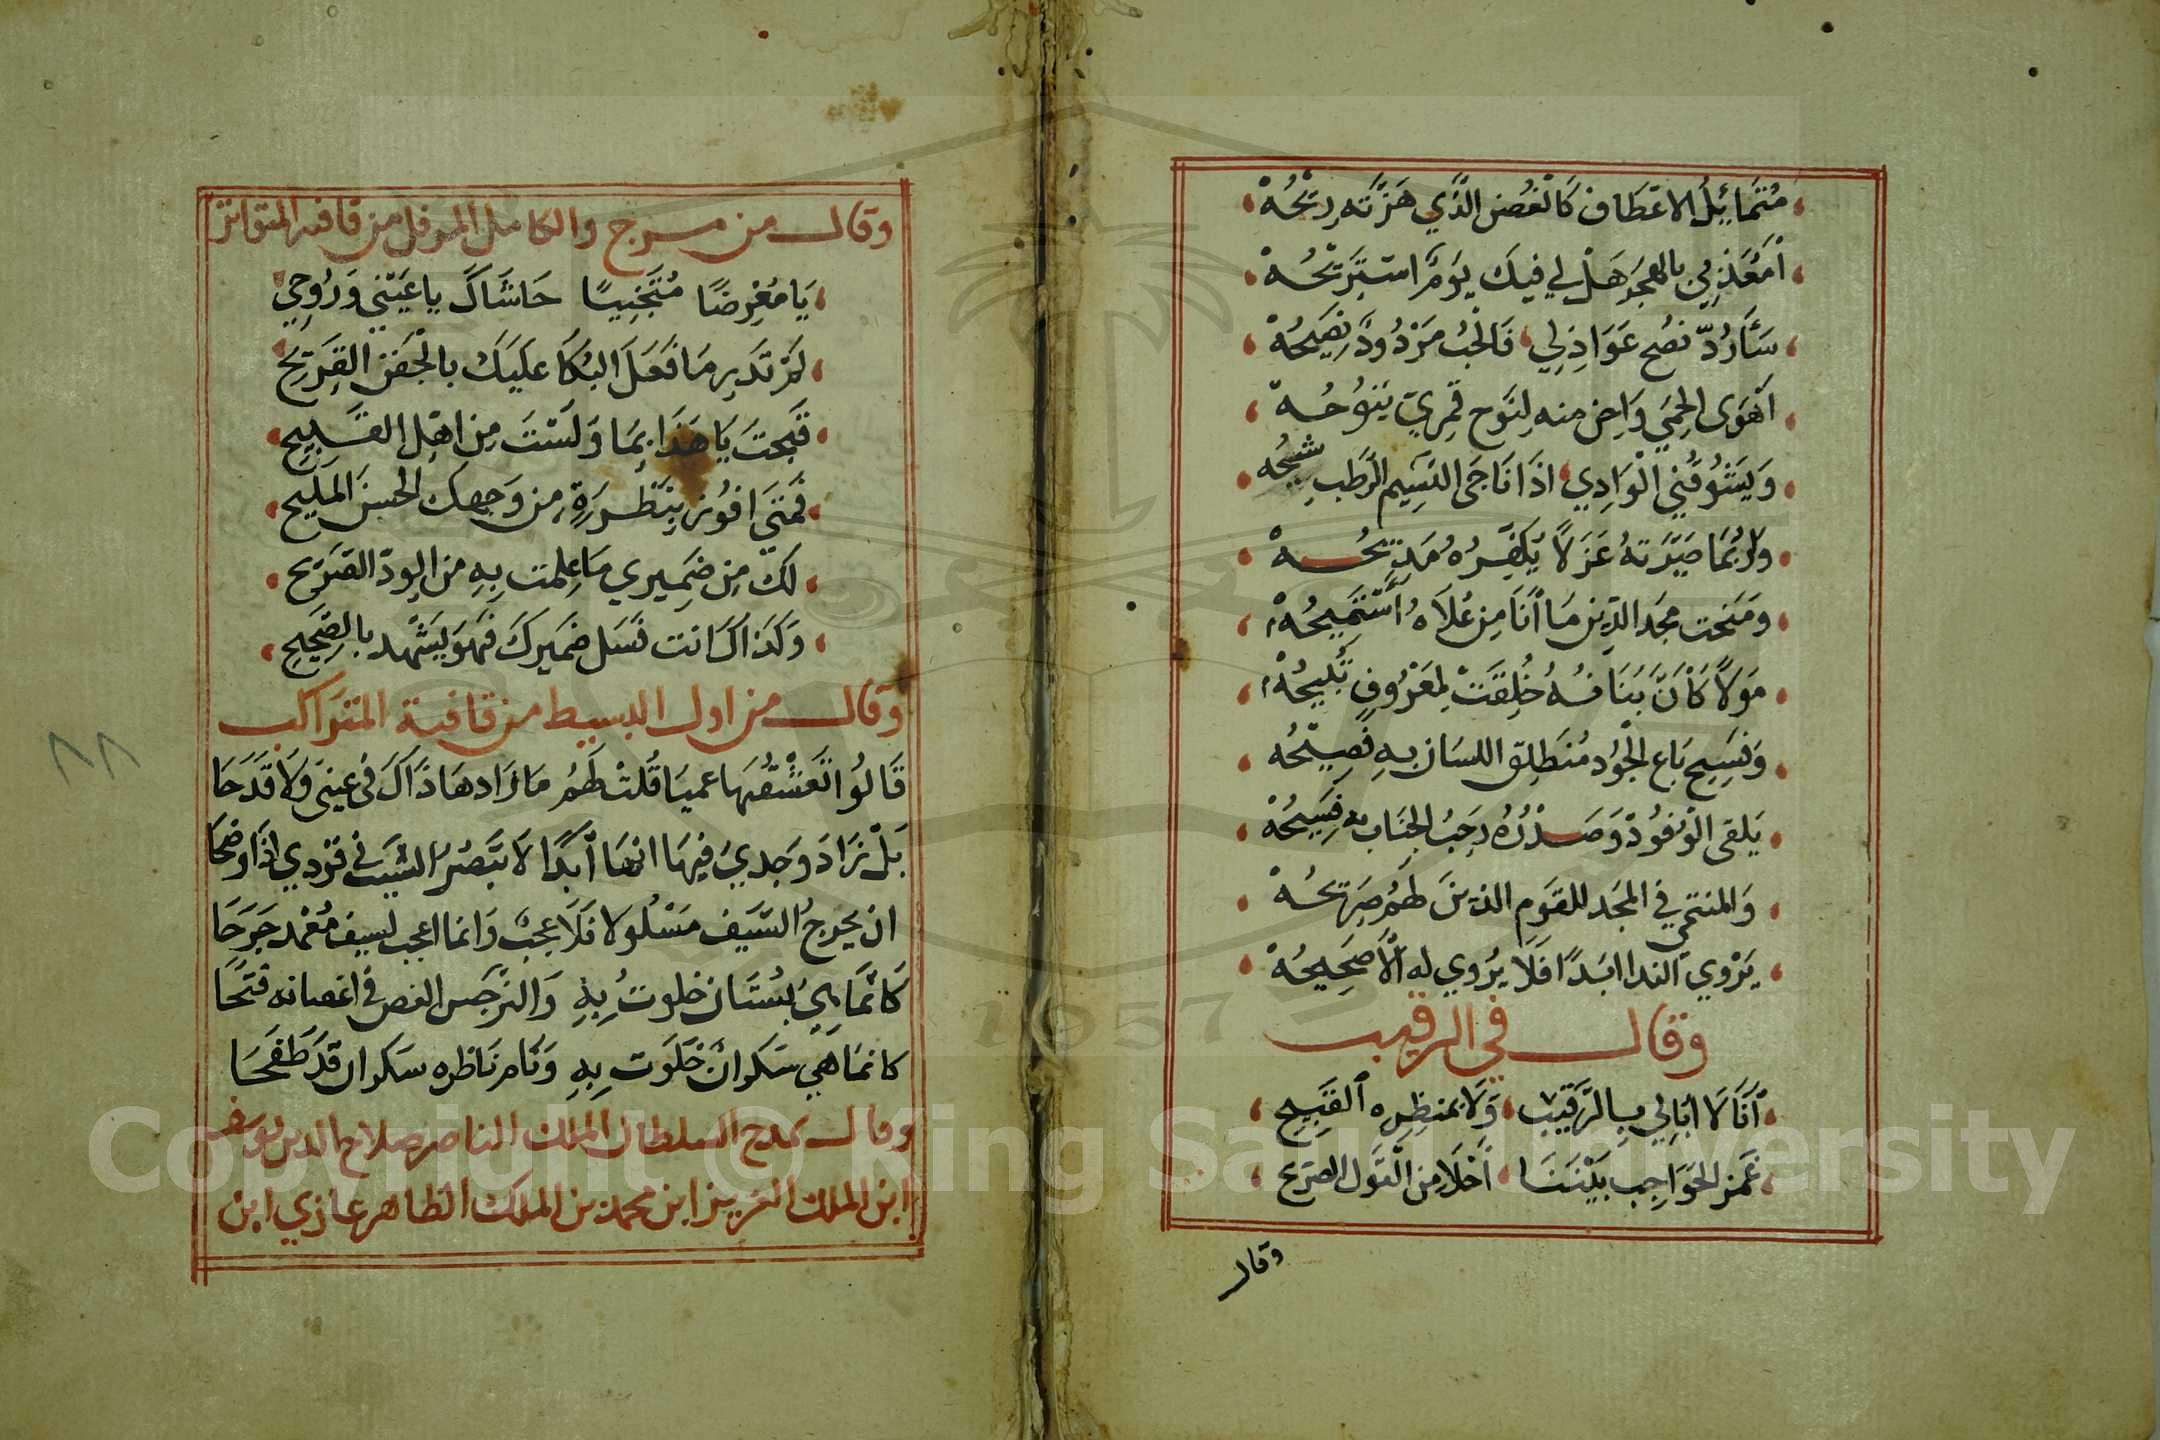 مُتمَايِلُ الاعْطَاف كَالْغُصْنِ الَّذِي هَزَّتَه رِيْحُهْ
أمُعَذِبِي بالهجَر هَلْ لِي فيكَ يَومٌ استَرِيْحُهْ
سَأَرُدّ نُصح عَوَاذِلِي فَالحُبُّ مَرْدُودٌ نَصِيْحُهْ
اَهْوَى الحِمَي وَاحِن منه لِنَوح قمرِيّ يَنوُحُهْ
وَيَشُوقُنِي الْوَادِي اذَا نَاجَى النَسِيم الرَّطب شِيحُهْ
ولرُبّمَا صَيَّرَتهُ غَزَلاً يُكَفِّرُهُ مَدِيْحُهْ
ومَنَحت مجَد الدِين مَا أنَا مِن عُلَاهُ أَسْتَمِيحُهْ
مَولاً كَأنَّ بَنَانهُ خُلِقَتْ لِمَعْرُوفٍ تُبِيحُهْ
وَفَسِيح بَاع الجُود مُنطَلِق اللسَان بهِ فصِيْحُهْ
يَلقى الْوفُودْ وَصَدْرُهُ رحَبُ الجَنَاب به فَسِيْحُهْ
وَالمنتمي في المجَد للقَومِ الذين لَهُم صَرِيْحُهْ
يَرْوِي الندا ابَدًا فَلَا يُروي له الّاَ صَحِيحُهْ
وقال في الرقيب
أنَا لَا أبَالِي بِالرَّقيْبِ وَلَا بمنظره القَبِيحِ
غَمز الحَوَاجِب بَيْنَنَا أحْلَا مِن القَول الصرِيح
وقال
وقال من مسرج والكامل المرفل من قافية المتواتر
يَا مُعْرِضًا مُتَجَنِيًا حَاشَاكَ يا عَيْني وَرُوحِي
لمَ تدَرِ مَا فَعَلَ البُكَا عَليَكَ بالجْفَنِ القَرِيْحِ
قَبُحَتَ يَا هَذَا بِمَا وَلَسْتَ مِن اهْلِ القَبِيحِ
فَمتَي افوُز بِنَظْرَةٍ مِن وَجهِك الحسِنَ المَلِيْحِ
لَكَ مِن ضَمِيري مَا عِلمت بِهِ مِن الوِدّ الصَرِيْحِ
وَكَذَاكَ انت فَسَل ضَميرِكَ فَهَوَ يَشْهد بالصَّحِيْحِ
وقال من اول البسيط من قافية المتراكب
قَالُوا تَعَشَّقْتَهَا عميَا قُلتْ لَهُمُ مَا زَادهَا ذَاكَ في عينيَ وَلَا قَدَحَا
بَلْ زَادَ وَجدِيَ فِيهَا انهَا أبَدًا لَا تَبصُرُ الشَيبَ في فَوْدِي اذَا وضَحَا
ان يجرحُ السَّيَف مَسْلُولا فَلَا عَجَبٌ وَانما اعجب لسيف مُغْمد جَرَحَا
كَانَّمَا هِي بُستَان خلوتُ بِهِ وَالنرَّجس الغص في اغصانه فتَحَا
كانمَا هَي سَكران خَلَوت بِهِ وَنَام نَاظره سَكران قَد طَفَحَا
وقال يمدح السلطان الملك الناصر صلاح الدين يوسف
ابن الملك العزيز ابن محمد بن الملك الظاهر غازي ابن
٨٨
Copyright © King Saud University
1957